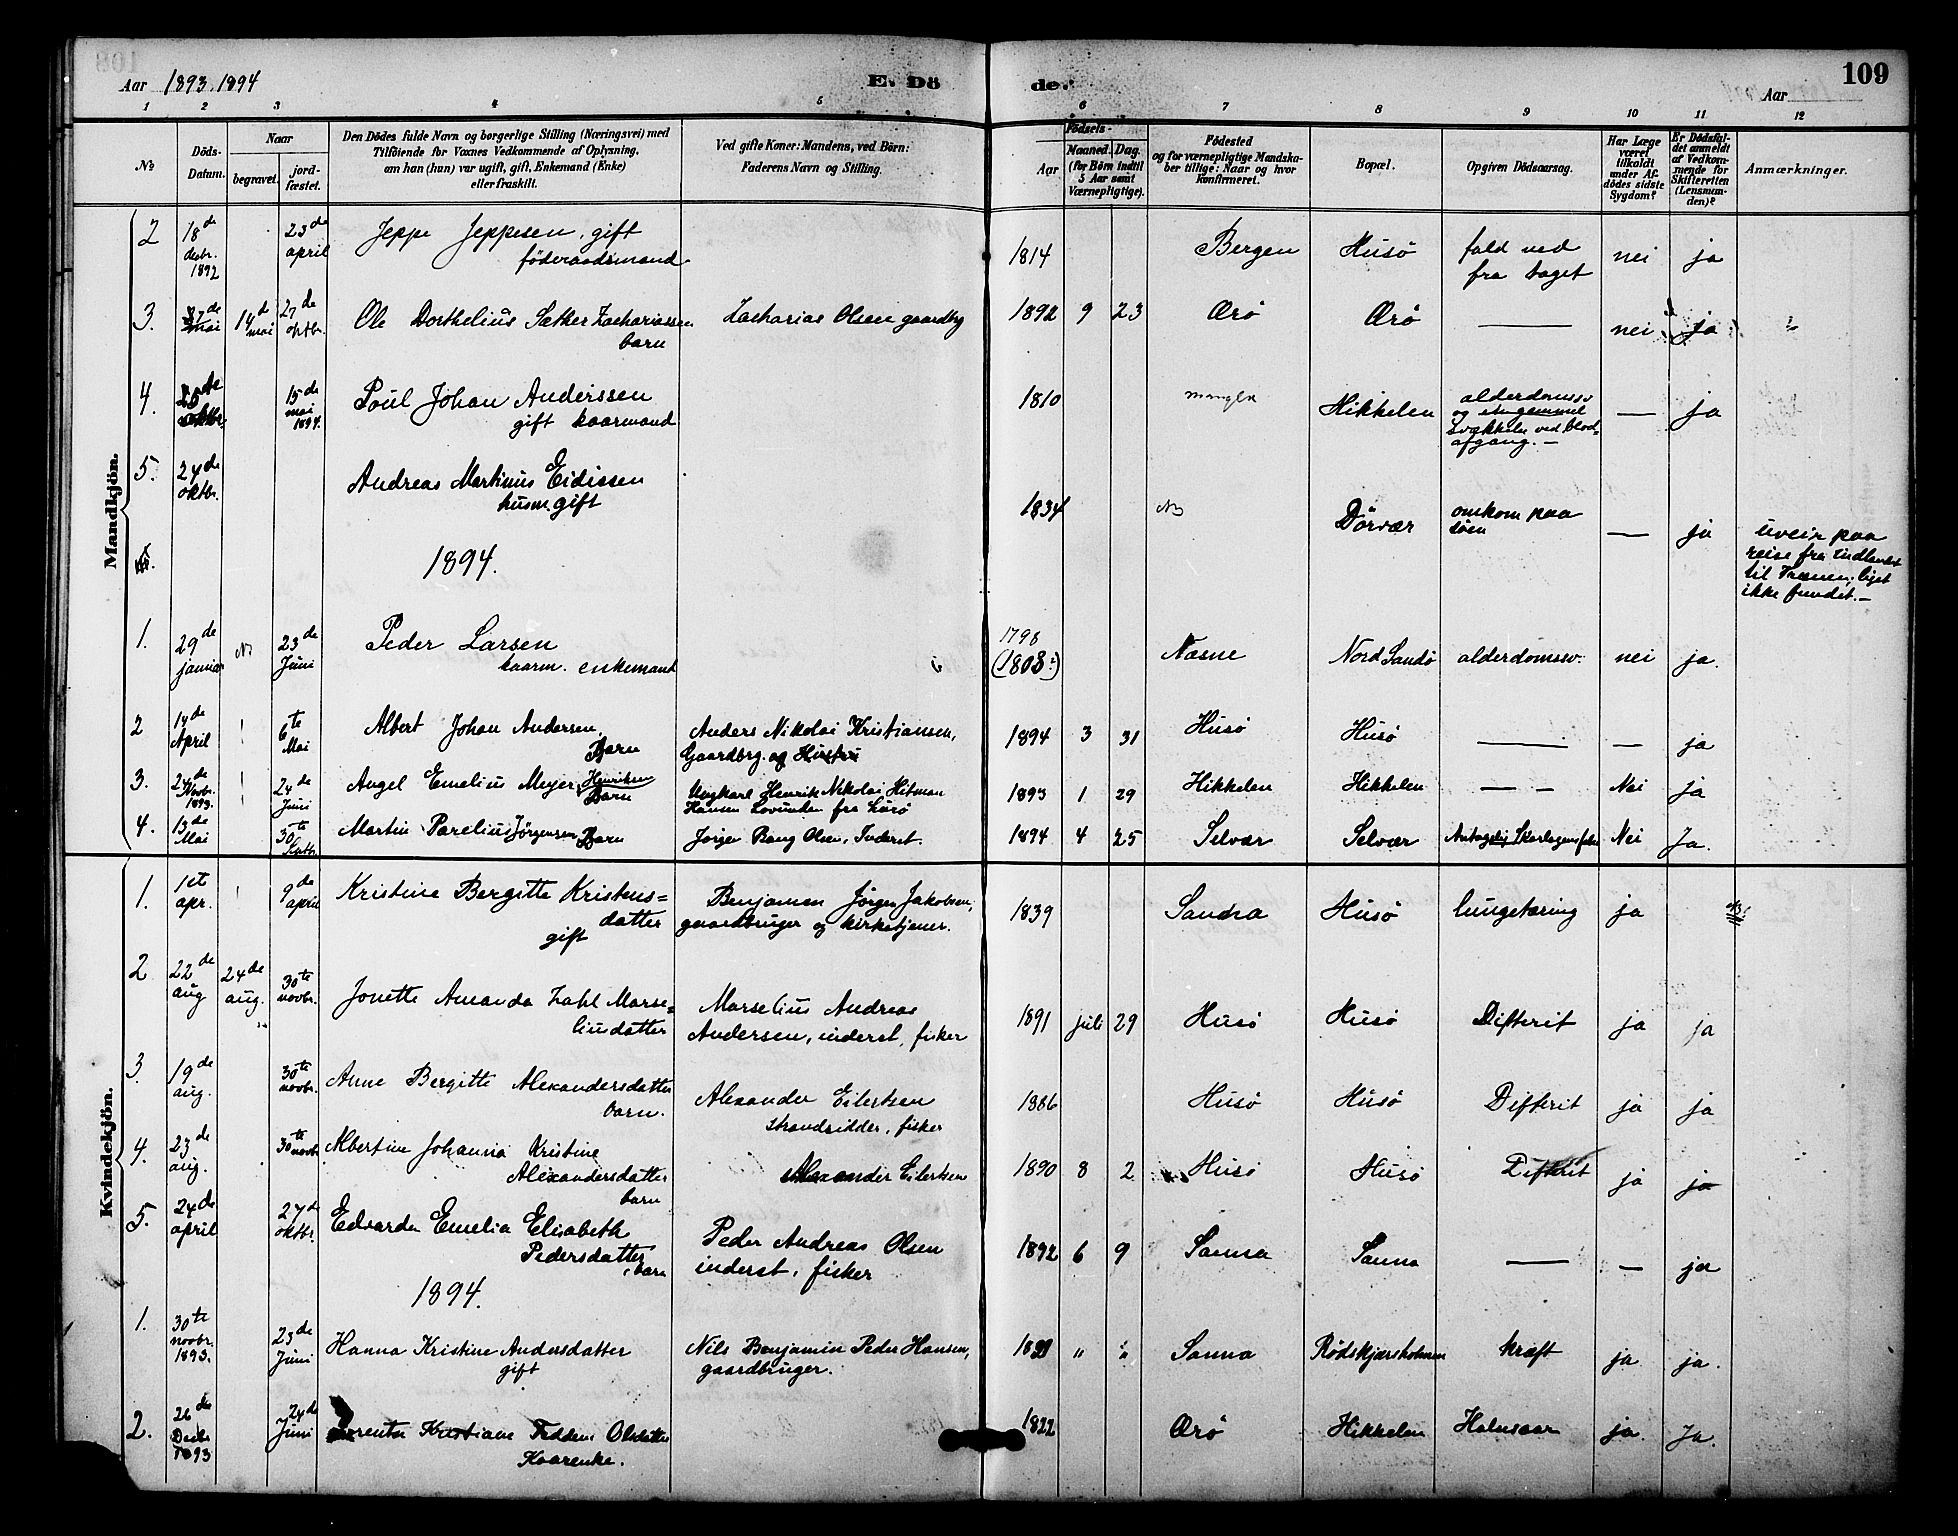 Aar 1893. 1894
E. Dö
de.
Aar
109
1 2 3 4 5 6 7 8 9 10 11 12
No
Döds-
Datum.
Naar
begravet.
jord-
fæstet.
Den Dödes fulde Navn og borgerlige Stilling (Næringsvei) med
Tilföiende for Voxnes Vedkommende af Oplysning,
om han (hun) var ugift, gift, Enkemand (Enke)
eller fraskilt.
Ved gifte Koner: Mandens, ved Börn:
Faderens Navn og Stilling.
Födsels-
Aar
Maaned. Dag.
(for Börn indtil
5 Aar samt
Værnepligtige).
Födested
og for værnepligtige Mandska-
ber tillige: Naar og hvor
konfirmeret.
Bopæl.
Opgiven Dödsaarsag.
Har Læge
været
tilkaldt
under Af-
dödes sidste
Sygdom?
Er Dödsfal-
det anmeldt
af Vedkom-
mende for
Skifteretten
(Lensman-
den)?
Anmærkninger.
Mandkjön.
2 18de desbr. 1892 23de april Jeppe Jeppesen, gift
föderaadsmand 1814 Bergen Husö fald ved
fra taget nei ja
3. 7de mai 14d mai 27de oktbr. Ole Dorthelius Sæther Zachariassen
barn Zacharias Olsen gaardbg 1892 9 23 Ærö Ærö — nei ja
4. oktbr. 15de mai 1894. Poul Johan Anderssen
gift kaarmand 1810 mangler Hikkelen alderdomssv
og
svækkelse ved blod-
afgang. — — ja
5. 24de oktbr. Andreas Martinus Eidissen
husm. gift 1834 Dörvær omkom paa
söen — ja uveir paa
reise fra Indlandet
til Trænen; liget
ikke fundet. —
1894.
1. 29de januar 23de Juni Peder Larsen
kaarm. enkemand 1798
(1808?) Næsne Nord Sandö alderdomssv. nei ja.
2 14de April 6te Mai Albert Johan Andersen,
Barn Anders Nikolai Kristiansen,
Gaardbrg. og Hustru 1894 3 31 Husö Husö — — ja
3. 24de Novbr. 1893. 24de Juni Angel Emelius Meyer Henriksen
Barn Ungkarl Henrik Nikolai Hitman
Hansen Lovunden fra Lurö 1893 1 29 Hikkelen Hikkelen — — Nei ja
4. 13de Mai 30te Septbr. Martin Parelius Jørgensen Barn Jørgen Bang Olsen, Inderst. 1894 4 25 Selvær Selvær Antagelig Skarlagensfeber Nei Ja.
Kvindekjön.
1. 1ste apr. 9de april Kristine Bergitte Kristens=
datter
gift Benjamen Jörgen Jakobsen,
gaardbruger og kirketjener. 1839 Sandra Husö lungetæring ja
2 22de aug 24de aug. 30te novbr. Jonette Amanda Zahl Marse=
liusdatter Marselius Andreas
Andersen, inderst, fisker 1891 juli 29 Husö Husö Difterit ja ja
3. 19de aug. 30te novbr. Anne Bergitte Alexandersdatter
barn. Alexander Eilertsen
strandsidder, fisker 1886 Husö Husö Difterit ja ja
4. 23de aug. 30te novbr. Albertine Johanna Kristine
Alexandersdatter
barn Alexander Eilertsen 1890 8 2 Husö Husö Difterit ja ja
5. 24de april 27d oktbr. Edvarda Emelia Elisabeth
Pedersdatter,
barn Peder Andreas Olsen
inderst, fisker 1892 6 9 Sanna Sanna — — ja
1894.
1. 30te novbr. 1893. 23de Juni Hanna Kristine Andersdatter
gift Nils Benjamin Peder Hansen,
gaardbruger. „ „ Sanna Rödskjærsholmen kræft ja ja.
2. 26de Decbr 1893 24de Juni Kristiane Olsdatter
Kaarenke. 1822 Ærö Hikkelen ja. Ja.